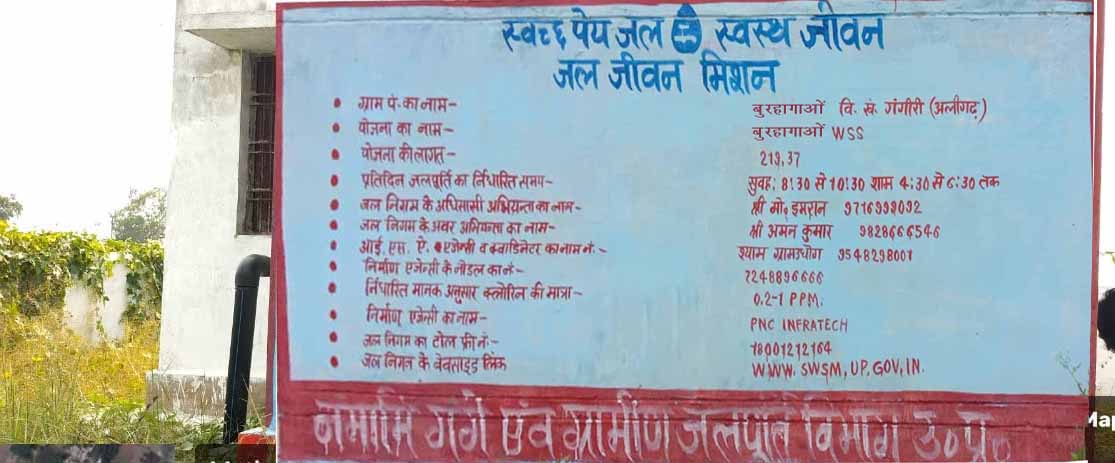 स्वच्छ पेय जल स्वस्थ जीवन
जल जीवन मिशन
ग्राम पं. का नाम- बुरहागाओं वि. खं. गंगीरी (अलीगढ़)
योजना का नाम- बुरहागाओं WSS
योजना की लागत- 219,37
प्रतिदिन जलपूर्ति का निर्धारित समय- सुवह: 8:30 से 10:30 शाम 4:30 से 6:30 तक
जल निगम के अधिसासी अभियन्ता का नाम- श्री मो. इमरान 9716999092
जल निगम के अवर अभियन्ता का नाम- श्री अमन कुमार 9828666546
आई. एस. ऐ. एजेन्सी व क्वाडिनेटर का नाम नं.- श्याम ग्रामउधोग 9548298001
निर्माण एजेन्सी के नोडल का नं- 7248896666
निर्धारित मानक अनुसार क्लोरिन की मात्रा- 0.2-1 PPM.
निर्माण एजेन्सी का नाम- PNC INFRATECH
जल निगम का टोल फ्री नं- 18001212164
जल निगम के वेबसाइड लिंक WWW. SWSM, UP, GOV, IN.
नामामि गंगे एंव ग्रामीण जलपूर्ति विभाग उ०प्र०
Map